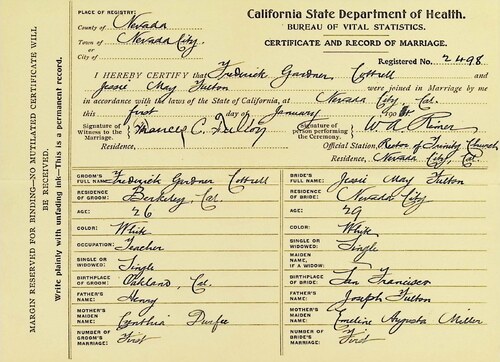 MARGIN RESERVED FOR BINDING—NO MUTILATED CERTIFICATE WILL
BE RECEIVED.
Write plainly with unfading ink—This is a permanent record.
PLACE OF REGISTRY:
County of Nevada
Town of Nevada City
or
City of
California State Department of Health.
BUREAU OF VITAL STATISTICS.
CERTIFICATE AND RECORD OF MARRIAGE.
Registered No. 2498
I HEREBY CERTIFY that Frederick Gardner Cottrell and
Jessie May Fulton were joined in Marriage by me
in accordance with the laws of the State of California, at Nevada City, Cal.
this first day of January
Signature of Witness to the Marriage, Frances C. Fulton
Residence,
Signature of person performing the Ceremony. W. A. Rimer
Official Station, Rector of Trinity Church,
Residence, Nevada City, Cal.
GROOM'S FULL NAME: Frederick Gardner Cottrell
RESIDENCE OF GROOM: Berkeley, Cal.
AGE: 26
COLOR: White
OCCUPATION: Teacher
SINGLE OR WIDOWED: Single
BIRTHPLACE OF GROOM: Oakland, Cal.
FATHER'S NAME: Henry
MOTHER'S MAIDEN NAME: Cynthia Durfee
NUMBER OF GROOM'S MARRIAGE: First
BRIDE'S FULL NAME: Jessie May Fulton
RESIDENCE OF BRIDE: Nevada City
AGE: 29
COLOR: White
SINGLE OR WIDOWED: Single
MAIDEN NAME, IF A WIDOW:
BIRTHPLACE OF BRIDE: San Francisco
FATHER'S NAME: Joseph Fulton
MOTHER'S MAIDEN NAME: Emeline Augusta Miller
NUMBER OF BRIDE'S MARRIAGE: First